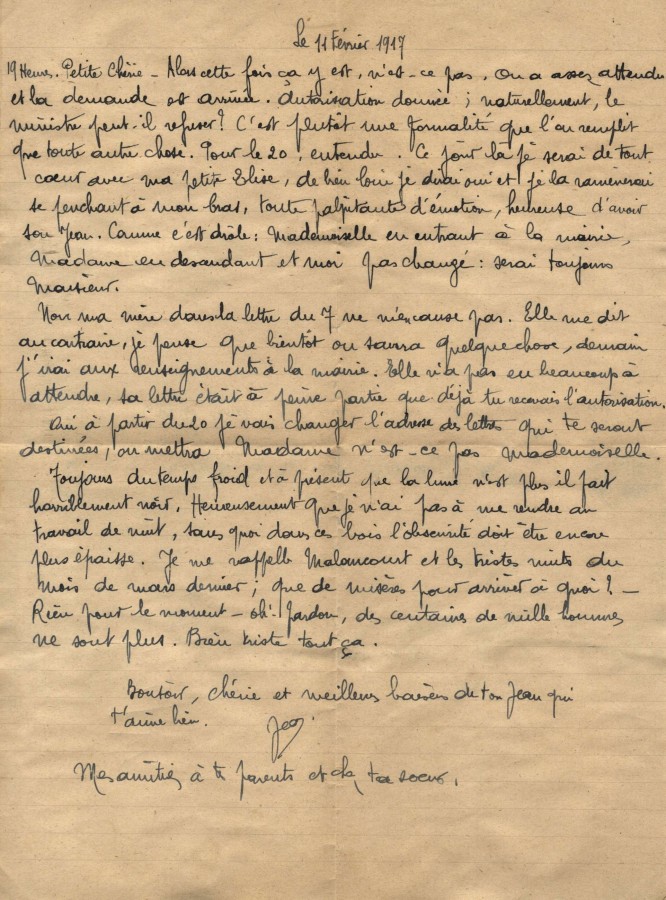 Le 11 Février 1917
19 Heures. Petite Chérie – Alors cette fois ça y est, n'est-ce pas. On a assez attendu
et la demande est arrivée. Autorisation donnée ; naturellement, le
ministre peut-il refuser ? C'est plutôt une formalité que l'on remplit
que toute autre chose. Pour le 20, entendu. Ce jour là je serai de tout
cœur avec ma petite Elise, de bien loin je dirai oui et je la ramènerai
se penchant à mon bras, toute palpitante d'émotion, heureuse d'avoir
son Jean. Comme c'est drôle : Mademoiselle en entrant à la mairie,
Madame en descendant et moi pas changé : serai toujours
Monsieur.
Non ma mère dans la lettre du 7 ne m'en cause pas. Elle me dit
au contraire, je pense que bientôt on saura quelque chose, demain
j'irai aux renseignements à la mairie. Elle n'a pas eu beaucoup à
attendre, sa lettre était à peine partie que déjà tu recevais l'autorisation.
Oui à partir du 20 je vais changer l'adresse des lettres qui te seront
destinées, on mettra Madame n'est-ce pas Mademoiselle.
Toujours du temps froid et à présent que la lune n'est plus il fait
horriblement noir. Heureusement que je n'ai pas à me rendre au
travail de nuit, sans quoi dans ces bois l'obscurité doit être encore
plus épaisse. Je me rappelle Malancourt et les tristes nuits du
mois de mars dernier ; que de misères pour arriver à quoi ? –
Rien pour le moment – oh ! Pardon, des centaines de mille hommes
ne sont plus. Bien triste tout ça.
Bonsoir, chérie et meilleurs baisers de ton Jean qui
t'aime bien.
Jean.
Mes amitiés à tes parents et à ta soeur.